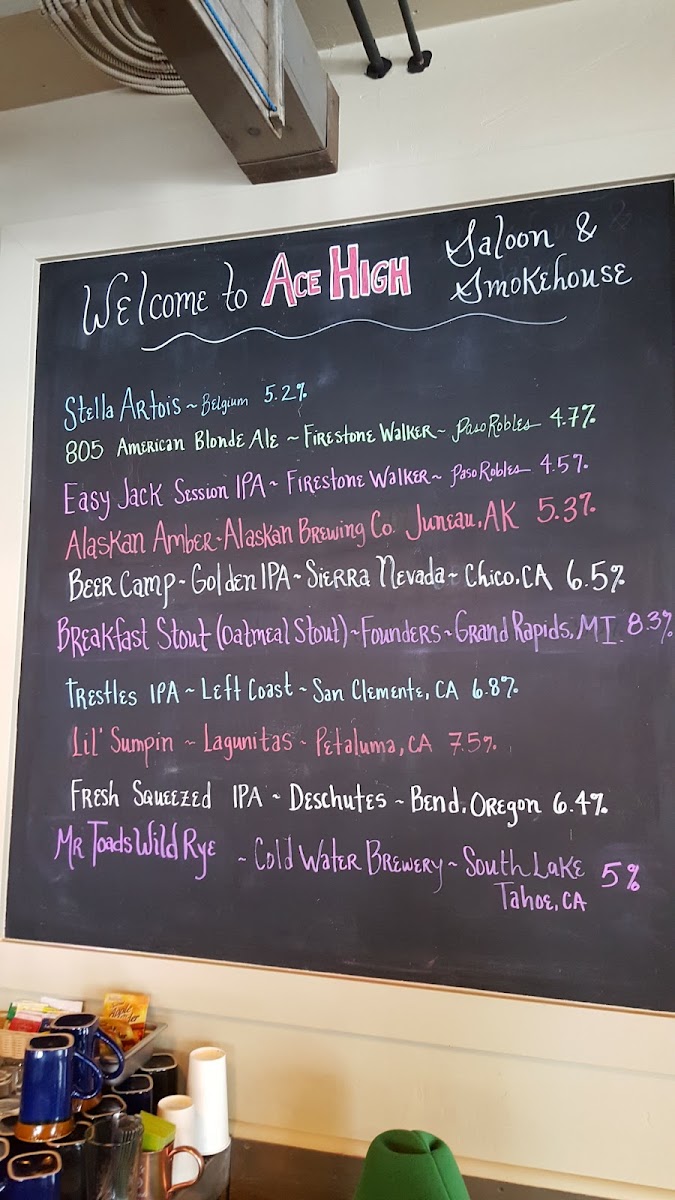 Welcome to Ace High Saloon & Smokehouse
Stella Artois ~ Belgium 5.2%
805 American Blonde Ale ~ Firestone Walker ~ Paso Robles 4.7%
Easy Jack Session IPA ~ Firestone Walker ~ Paso Robles 4.5%
Alaskan Amber ~ Alaskan Brewing Co. Juneau, AK 5.3%
Beer Camp ~ Golden IPA ~ Sierra Nevada ~ Chico, CA 6.5%
Breakfast Stout (Oatmeal Stout) ~ Founders ~ Grand Rapids, MI 8.3%
Trestles IPA ~ Left Coast ~ San Clemente, CA 6.8%
Lil' Sumpin ~ Lagunitas ~ Petaluma, CA 7.5%
Fresh Squeezed IPA ~ Deschutes ~ Bend, Oregon 6.4%
Mr Toads Wild Rye ~ Cold Water Brewery ~ South Lake Tahoe, CA 5%